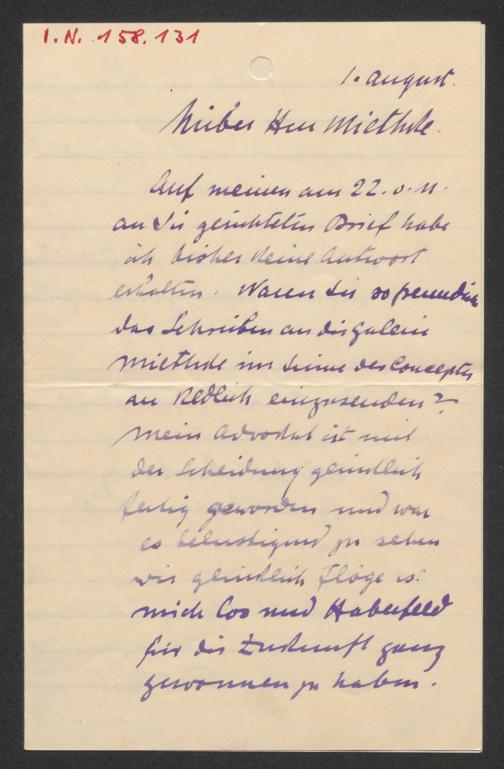 I.N. 158.131
1. august.
Lieber Herr Miethke.
Auf meinen am 22. v. M.
an Sie gerichteten Brief habe
ich bisher keine Antwort
erhalten. Waren Sie so freundlich
das Schreiben an die Galerie
Miethke im Sinne des Conceptes
an Redlich einzusenden?
Mein Advokat ist mit
der Scheidung glücklich
fertig geworden und war
es belustigend zu sehen
wie glücklich Flöge ist
mich los und Haberfeld
für die Zukunft ganz
gewonnen zu haben.